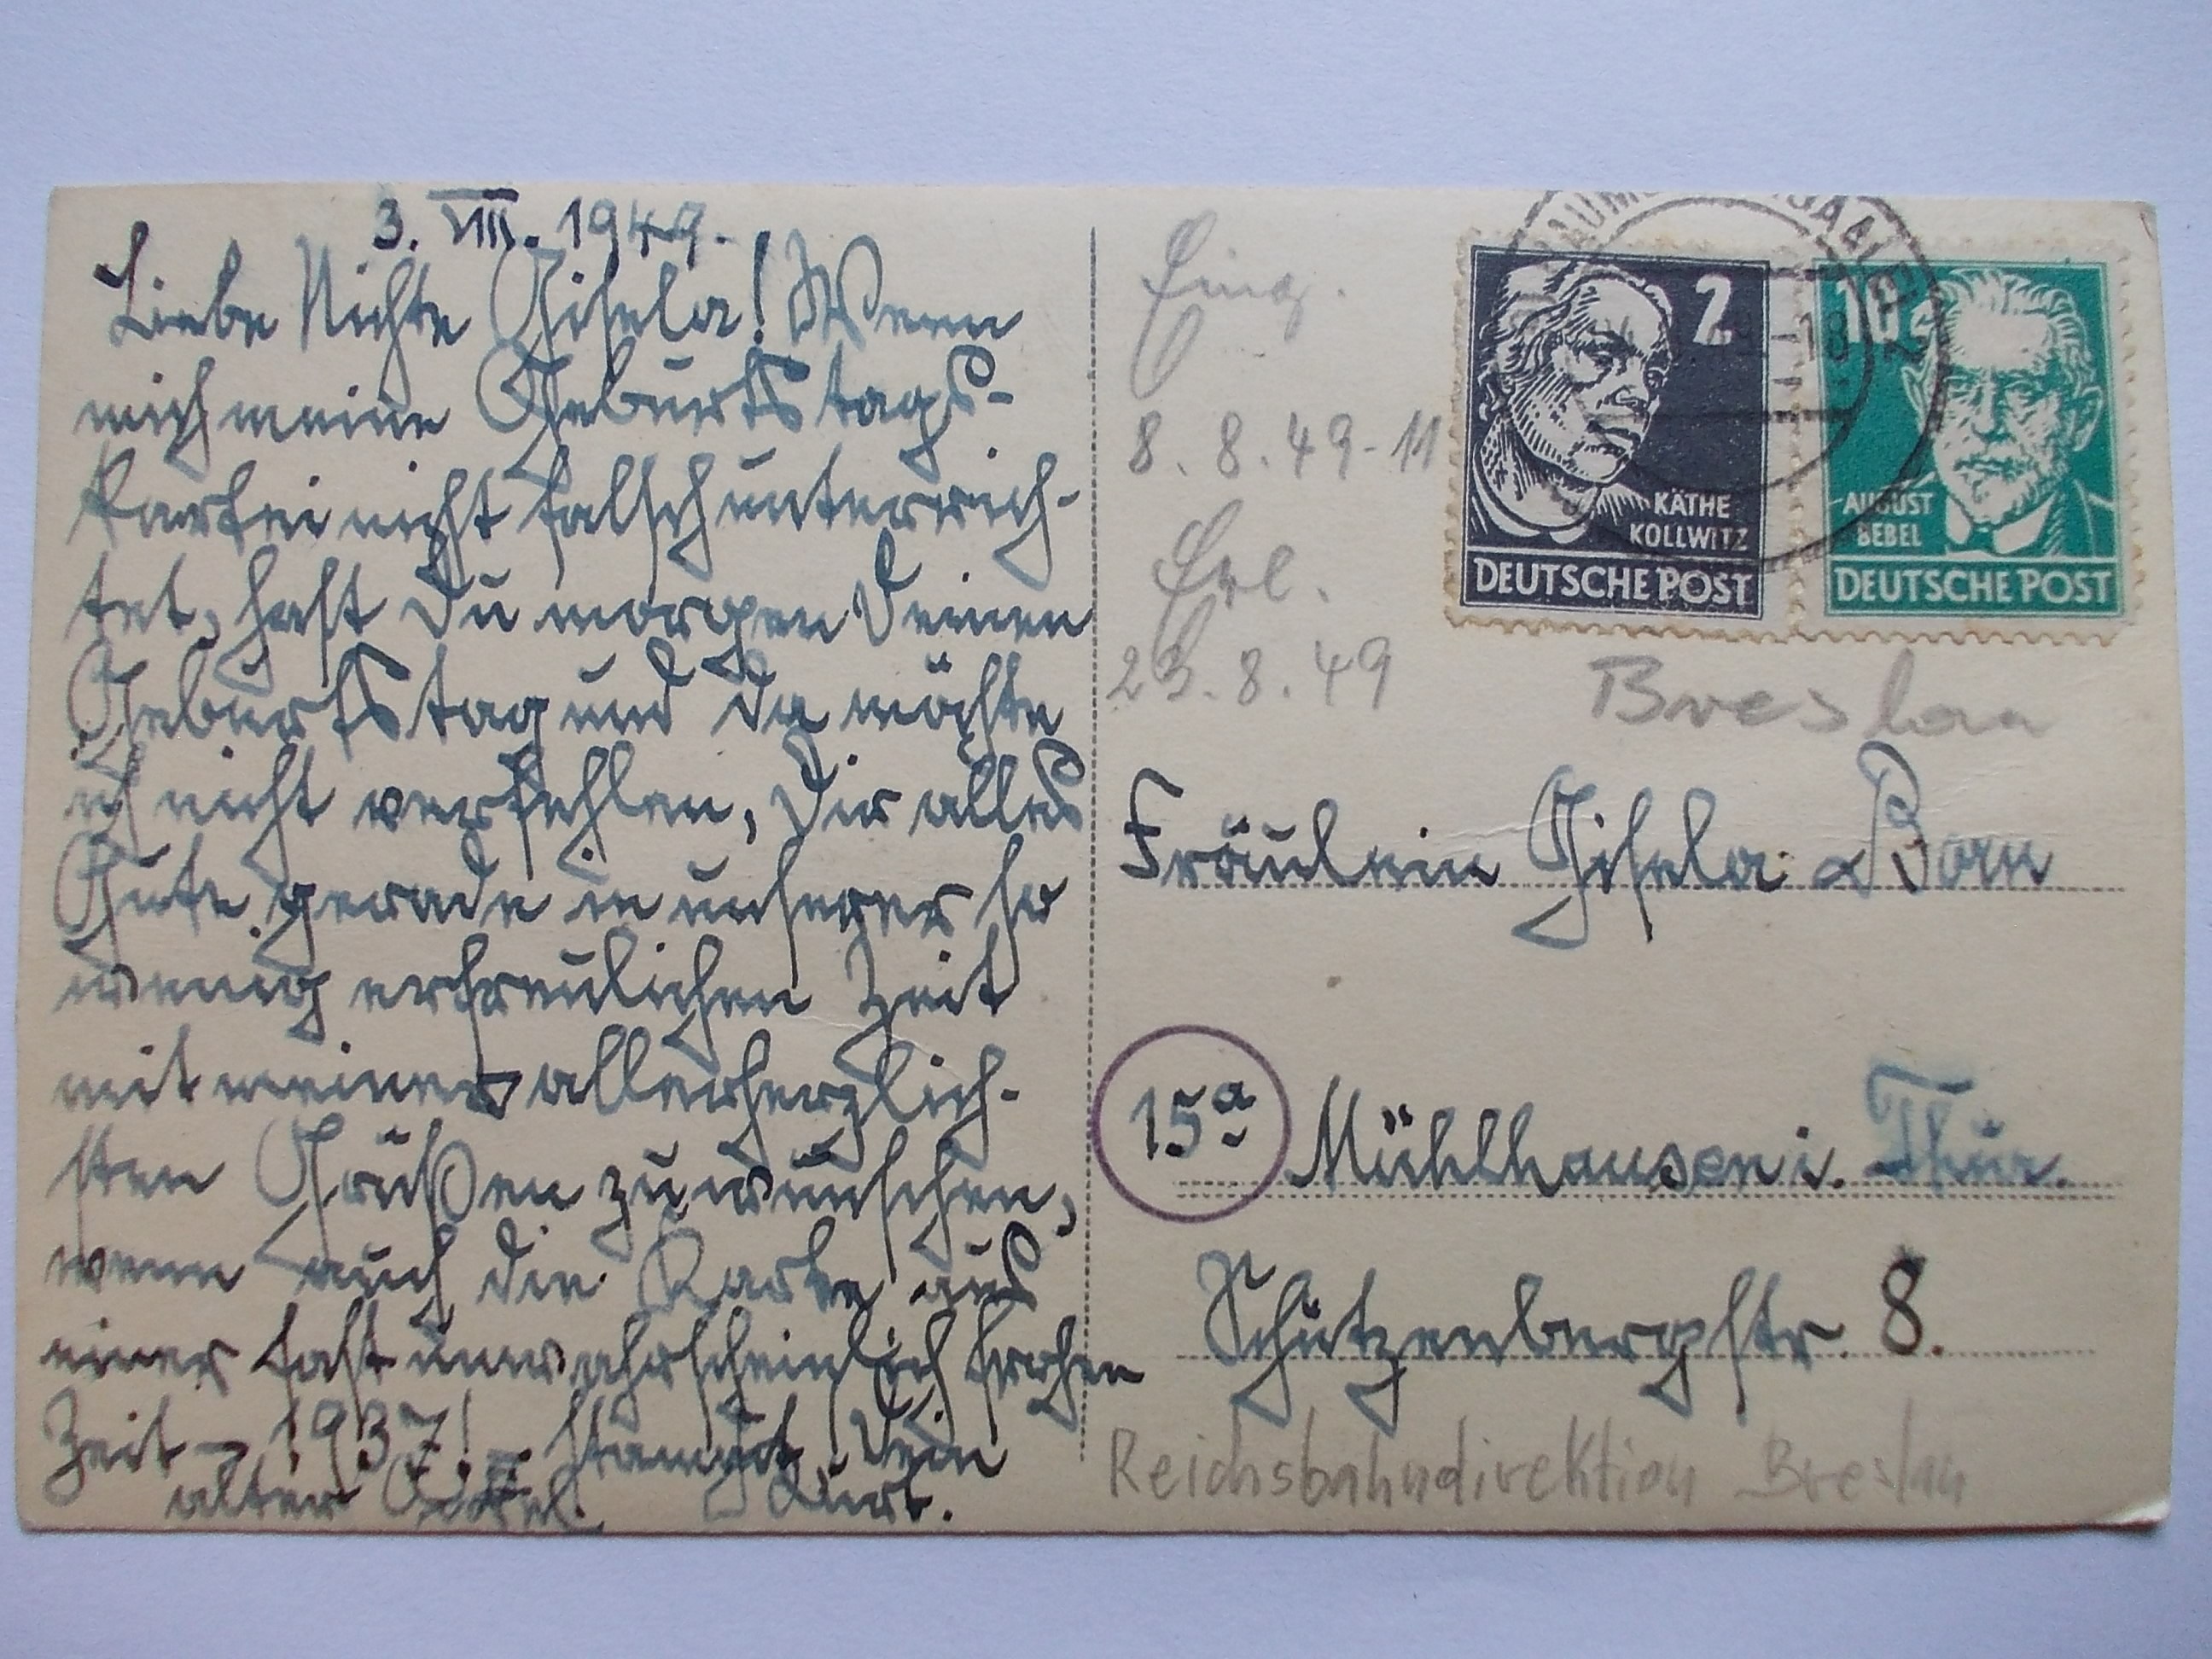 3. VIII. 1949.
Liebe Nichte Gisela! Wenn
mich meine Geburtstags-
kartei nicht falsch unterrich-
tet, hast Du morgen Deinen
Geburtstag und da möchte
ich nicht verfehlen, Dir alles
Gute gerade in unserer so
wenig erfreulichen Zeit
mit meinen allerherzlich-
sten Grüßen zu wünschen,
wenn auch die Karte aus
einer fast unwahrscheinlich frohen
Zeit - 1937! - stammt. Dein
alter Onkel Kurt.
Eing.
8. 8. 49 - 11
Erl.
23. 8. 49
2
KÄTHE
KOLLWITZ
DEUTSCHE POST
10
AUGUST
BEBEL
DEUTSCHE POST
18
Breslau
Fräulein Gisela Born
15a Mühlhausen i. Thür.
Schützenbergstr. 8.
Reichsbahndirektion Breslau